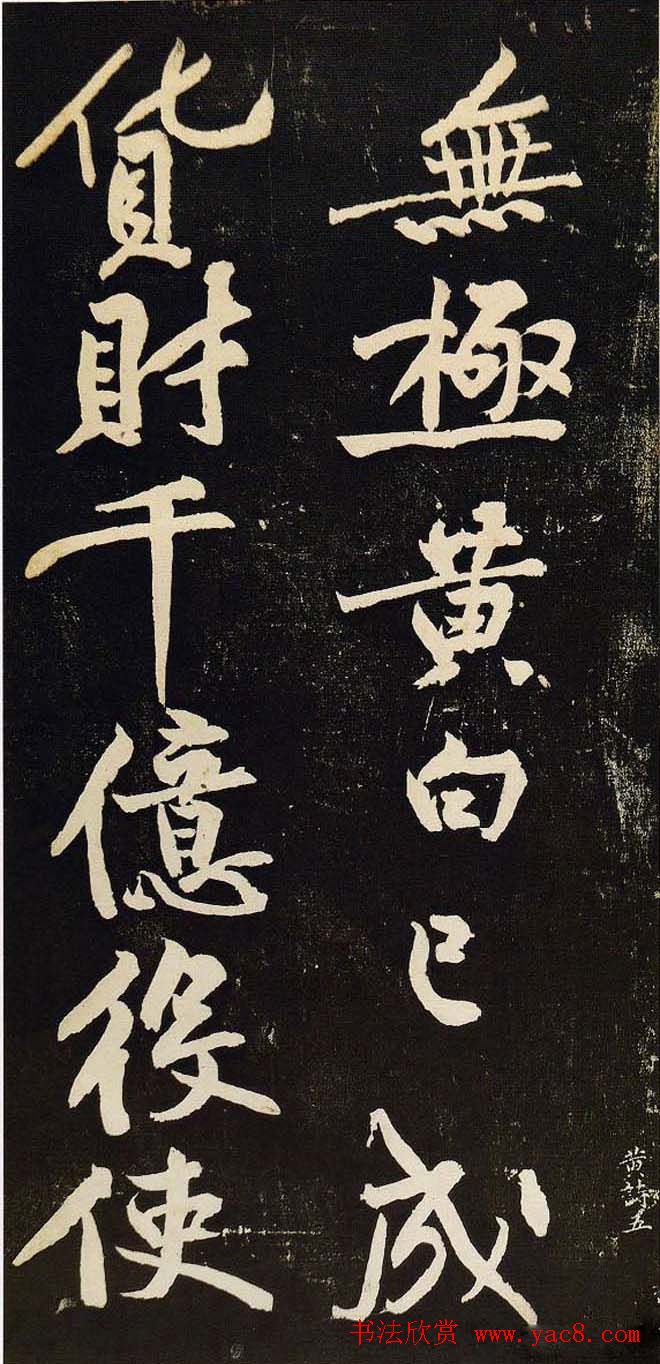 無極黄白已成
貨財千億役使
黄詩五
书法欣赏 www.yac8.com